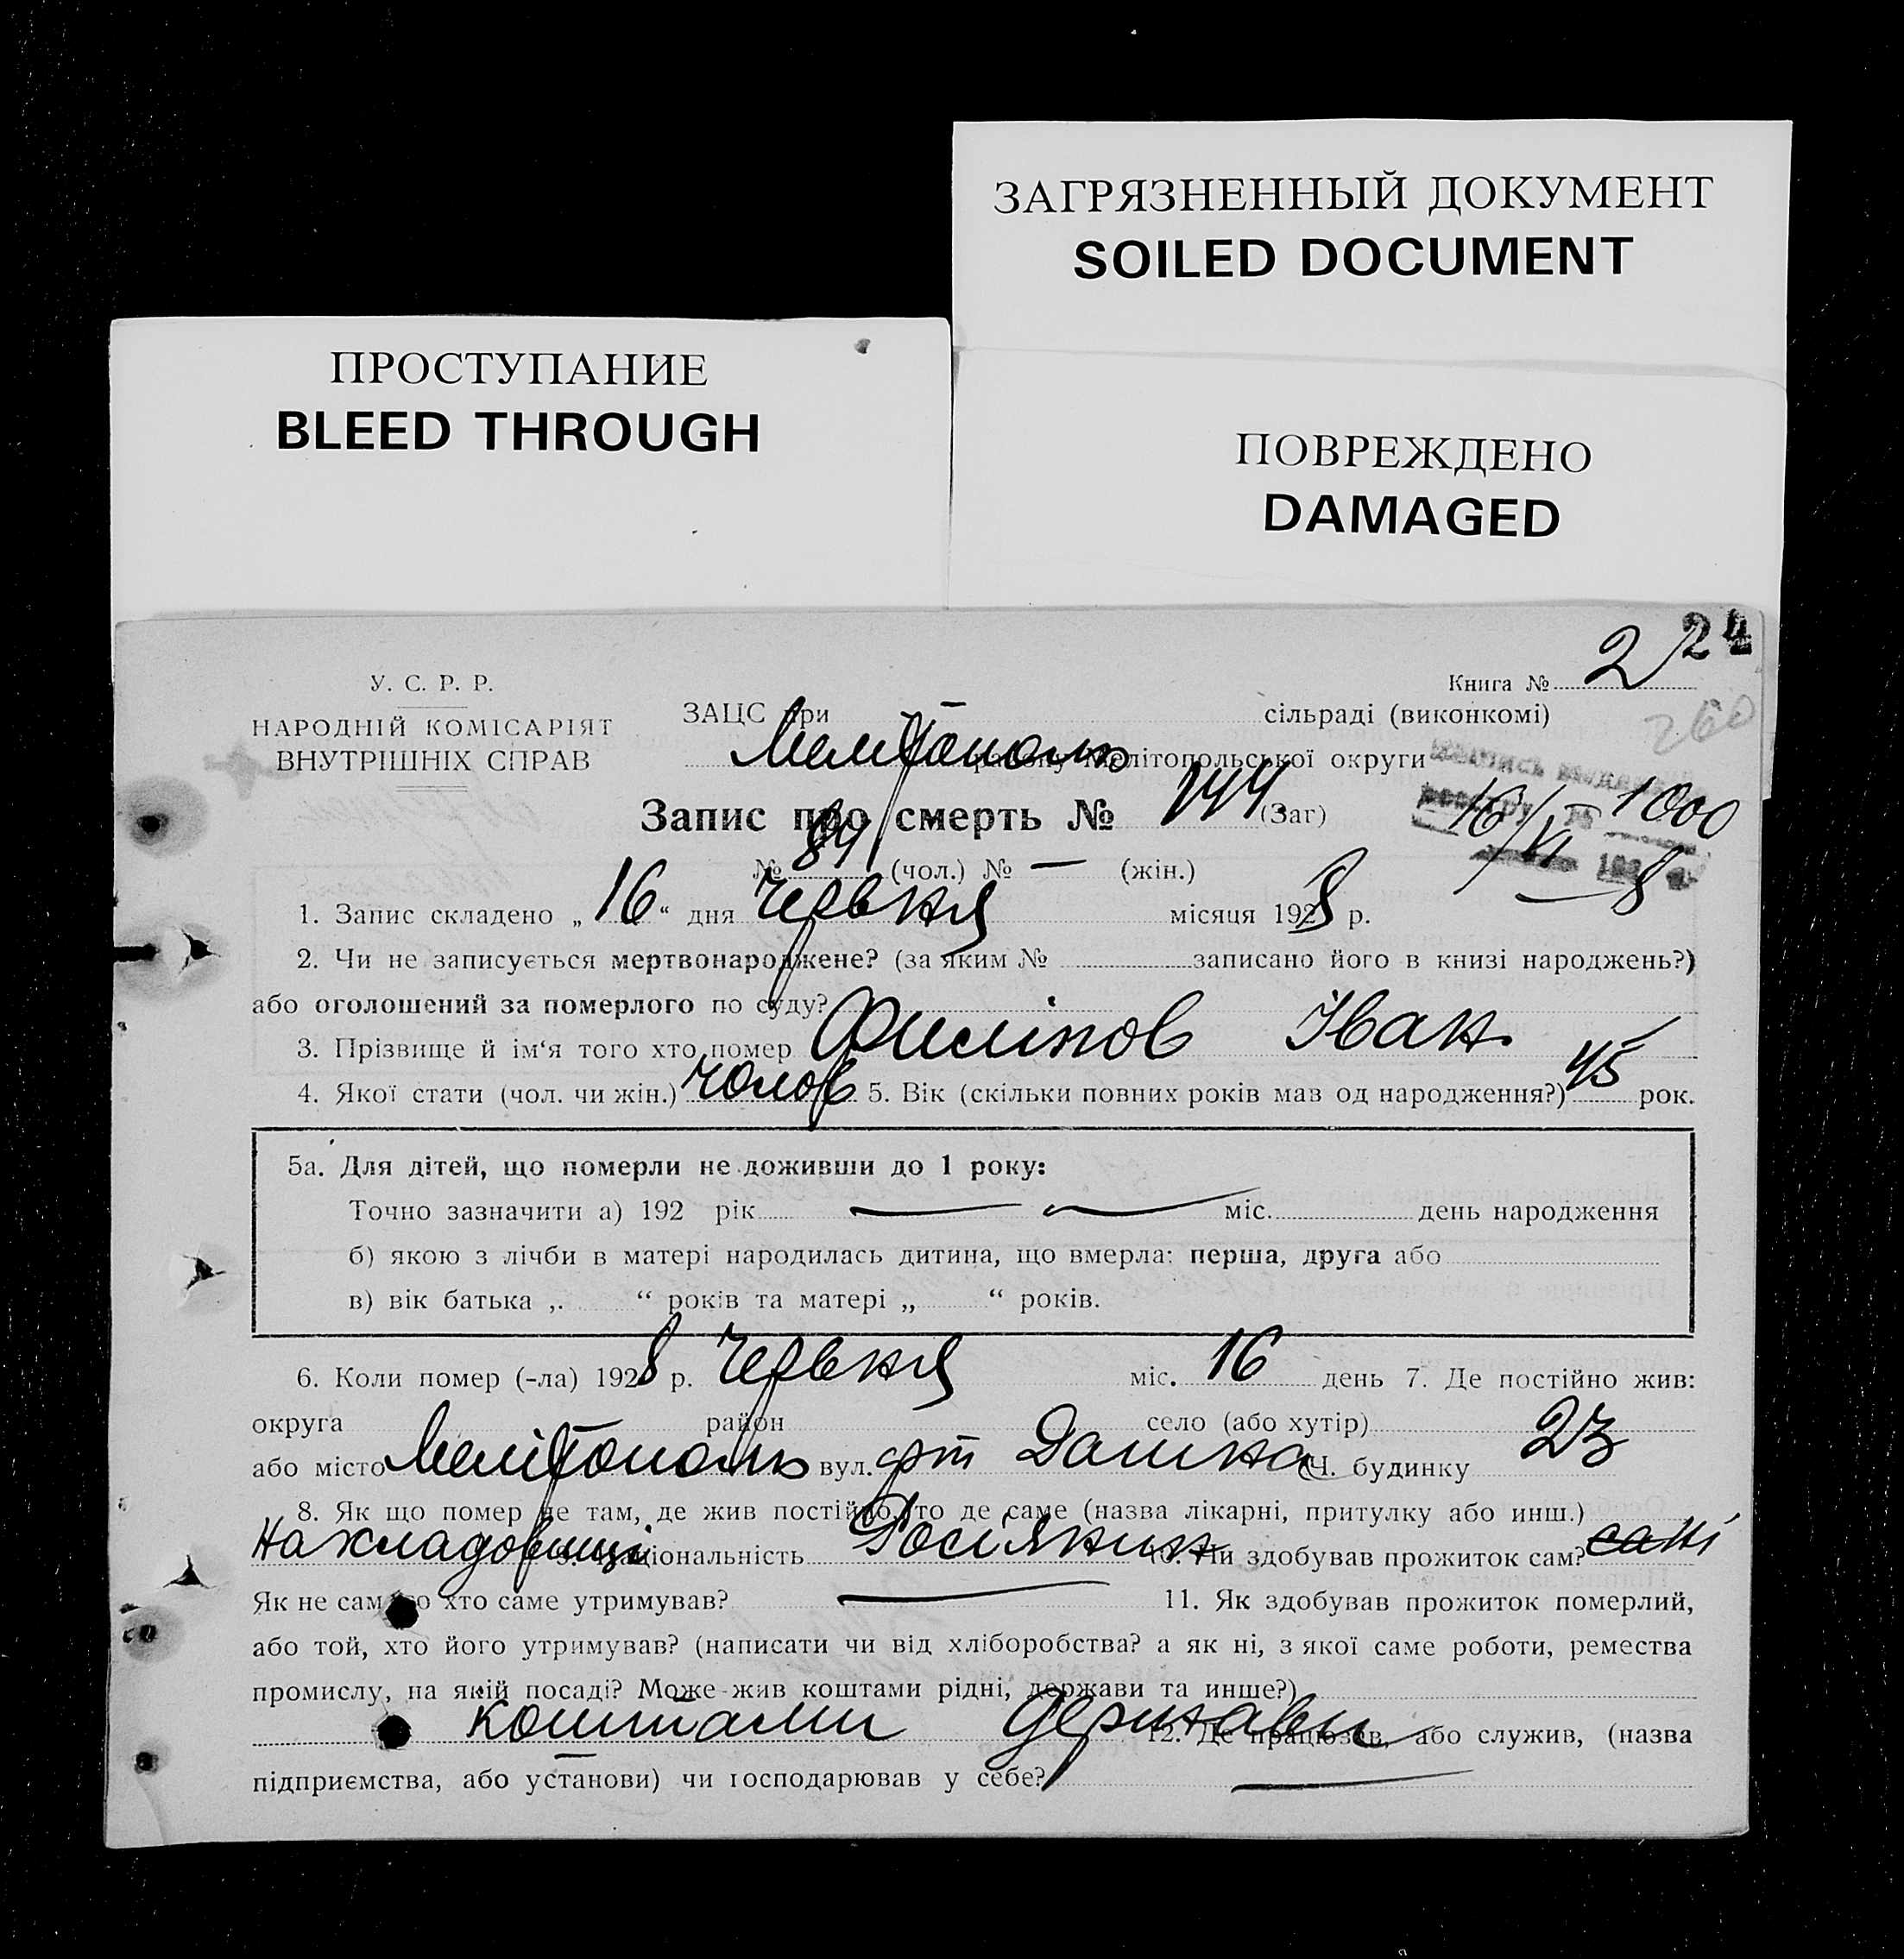 ЗАГРЯЗНЕННЫЙ ДОКУМЕНТ
SOILED DOCUMENT
ПРОСТУПАНИЕ
BLEED THROUGH
ПОВРЕЖДЕНО
DAMAGED
24
У. С. Р. Р.
НАРОДНІЙ КОМІСАРІЯТ
ВНУТРІШНІХ СПРАВ
Книга № 2
260
ЗАЦС при сільраді (виконкомі)
Мелітополь району Мелітопольської округи
16/VI 1000
8
Запис про смерть № 144 (Заг)
№ 84 (чол.) № — (жін.)
1. Запис складено „16“ дня Червня місяця 1928 р.
2. Чи не записується мертвонароджене? (за яким № записано його в книзі народжень?)
або оголошений за померлого по суду?
3. Прізвище й ім‘я того хто помер Филіпов Іван
4. Якої стати (чол. чи жін.) чолов 5. Вік (скільки повних років мав од народження?) 45 рок.
5а. Для дітей, що померли не доживши до 1 року:
Точно зазначити а) 192 рік — міс. день народження
б) якою з лічби в матері народилась дитина, що вмерла: перша, друга або
в) вік батька „ “ років та матері „ “ років.
6. Коли помер (-ла) 1928 р. Червня міс. 16 день 7. Де постійно жив:
округа район село (або хутір)
або місто Мелітополь вул. Дашка Ч. будинку 23
8. Як що помер не там, де жив постійно, то де саме (назва лікарні, притулку або инш.)
на кладовищі 9. Національність Росіянин 10. Чи здобував прожиток сам?
Як не сам то хто саме утримував? —
11. Як здобував прожиток померлий,
або той, хто його утримував? (написати чи від хліборобства? а як ні, з якої саме роботи, ремества
промислу, на якій посаді? Може жив коштами рідні, держави та инше?)
коштами держави 12. Де працював, або служив, (назва
підприємства, або установи) чи господарював у себе? —